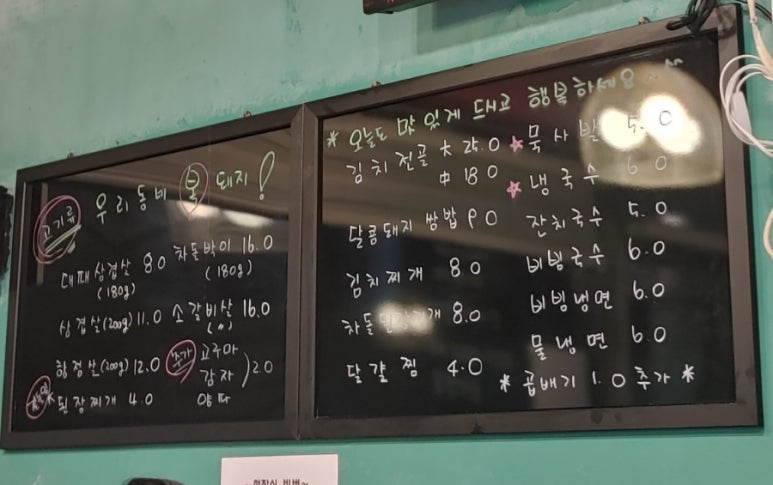 고기류 우리동네 불돼지!
대패삼겹살 8.0
(180g)
삼겹살(200g) 11.0
항정살(200g) 12.0
된장찌개 4.0
차돌박이 16.0
(180g)
소갈비살 16.0
(〃)
추가 고구마
감자
양파
2.0
* 오늘도 맛있게 드시고 행복하세요 ~ ^^
김치전골 大 25.0
中 18.0
달콤돼지 쌈밥 9.0
김치찌개 8.0
차돌된장찌개 8.0
달걀찜 4.0
☆ 묵사발 5.0
☆ 냉국수 6.0
잔치국수 5.0
비빔국수 6.0
비빔냉면 6.0
물냉면 6.0
* 곱배기 1.0 추가 *